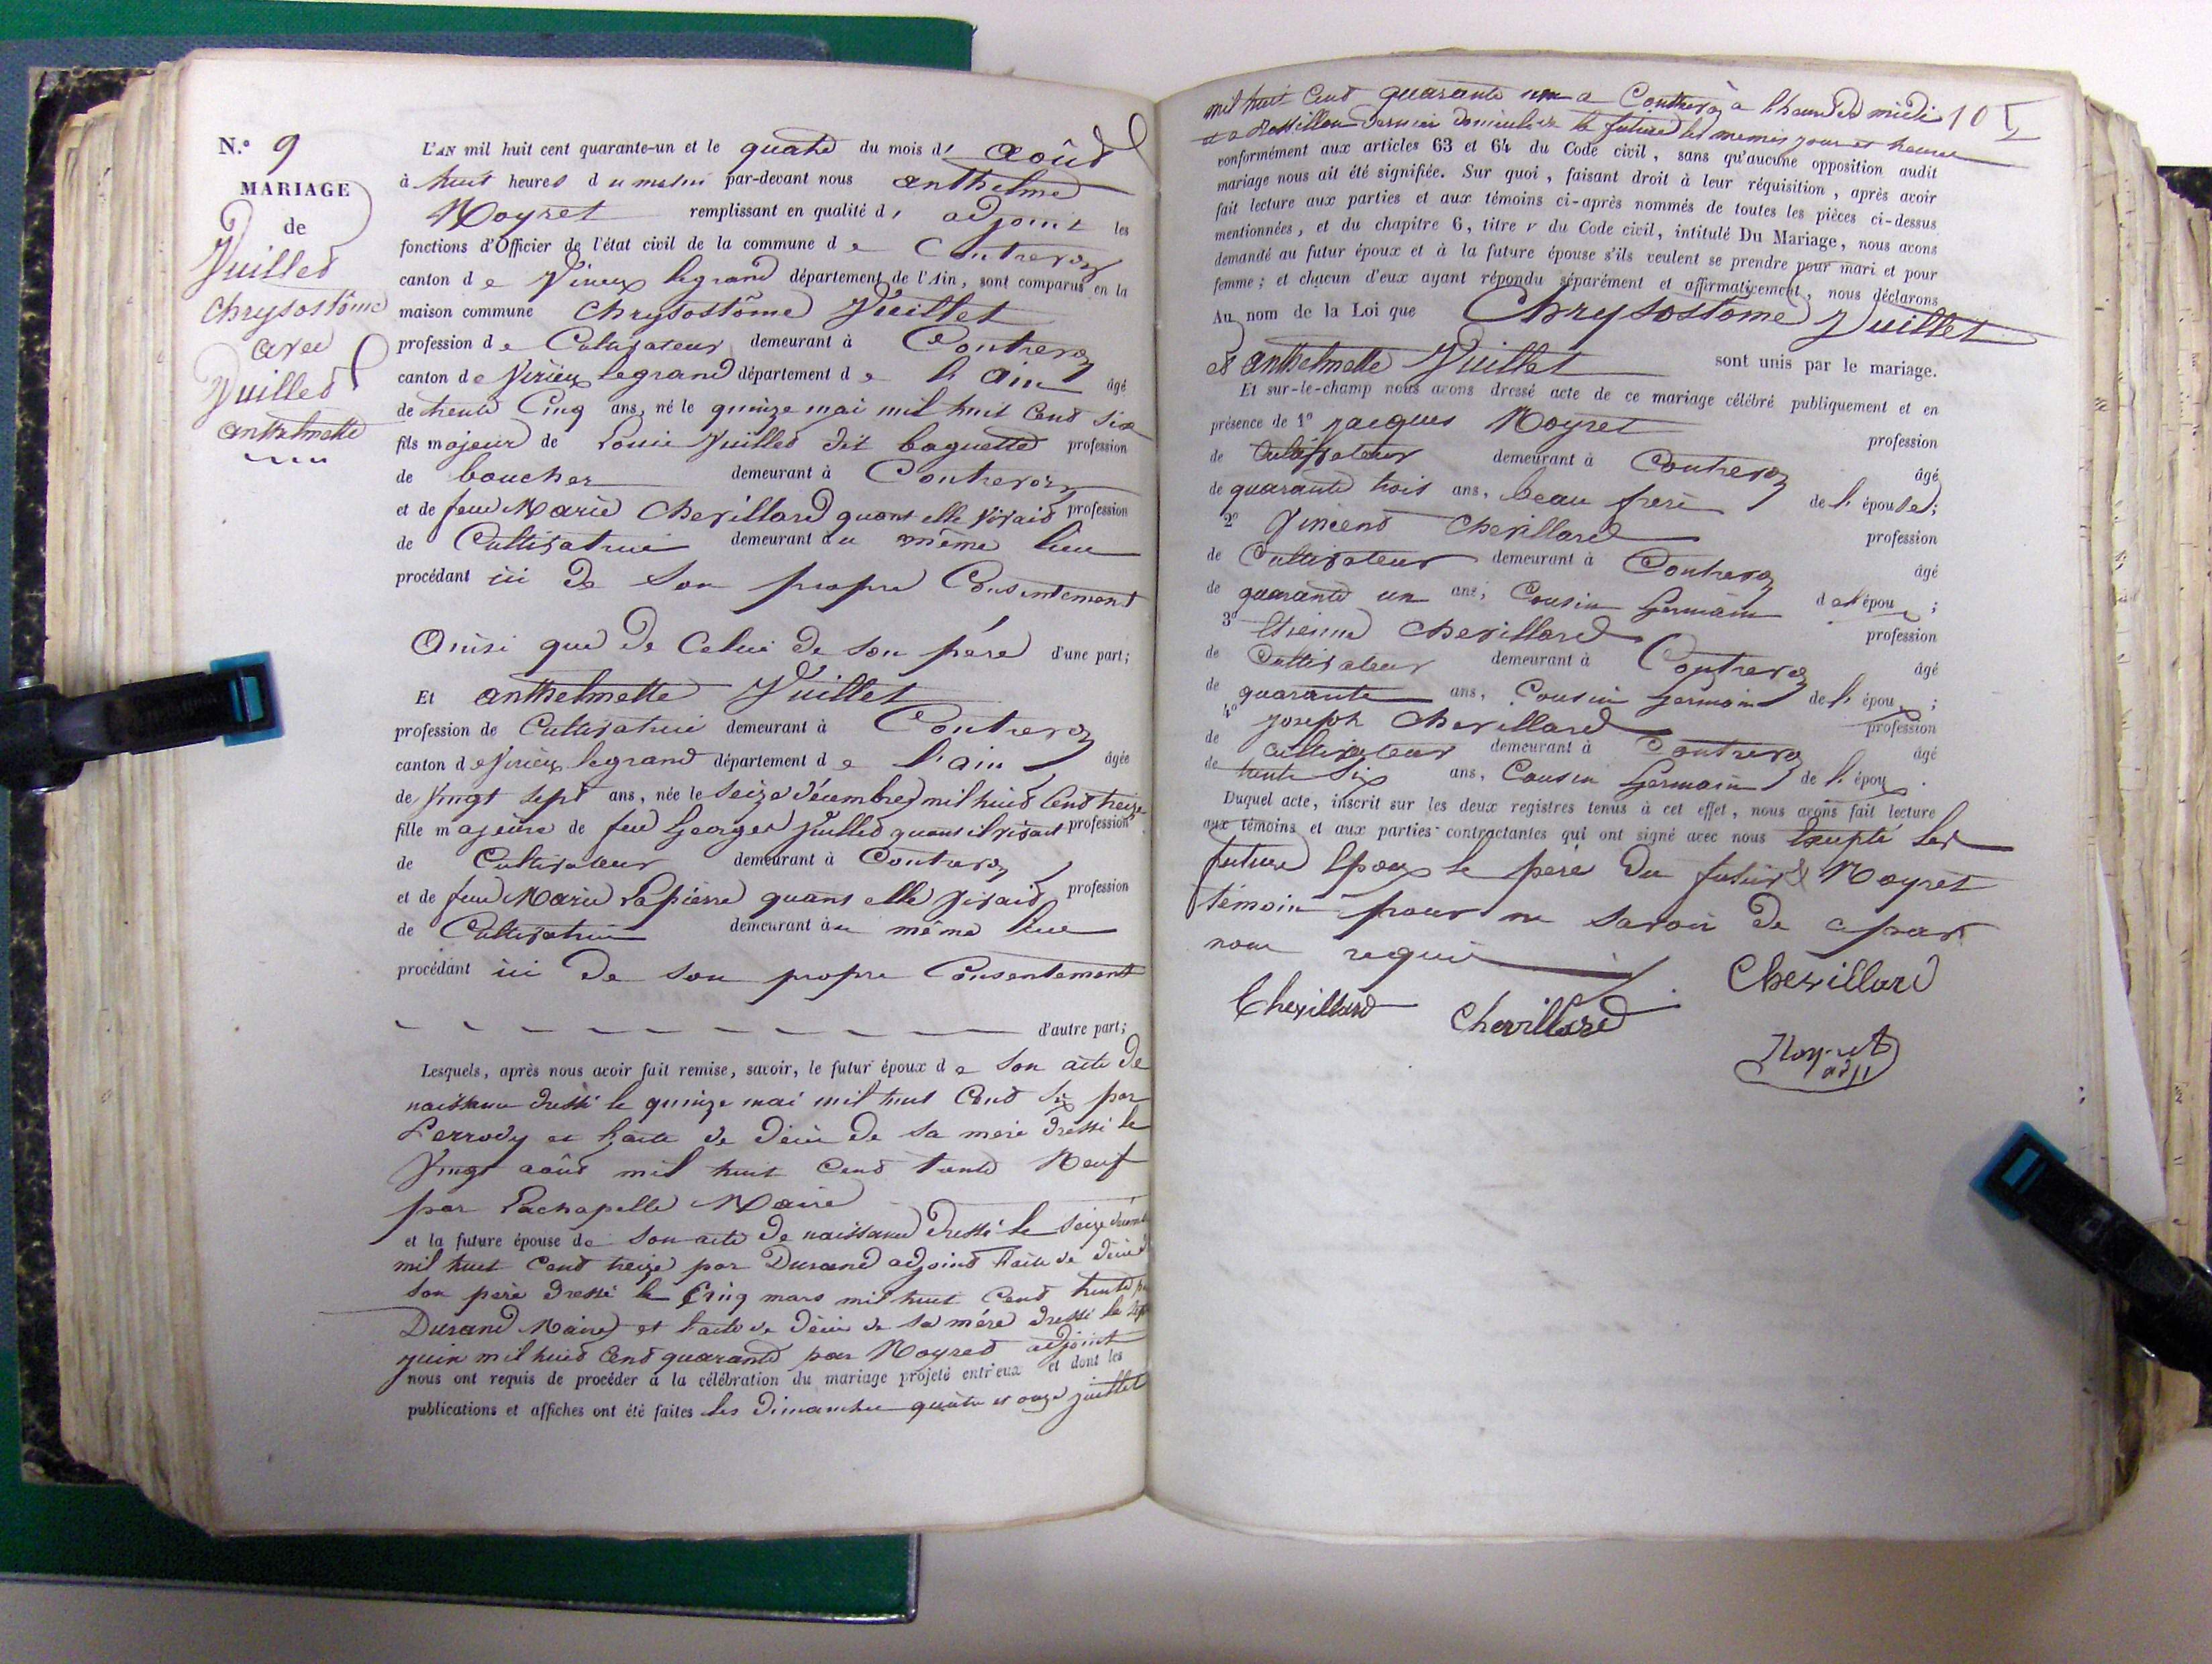 N.° 9
MARIAGE
de
Vuillet
Chrysostôme
avec
Vuillet
anthelmette
L'AN mil huit cent quarante-un et le quatre du mois d' août
à huit heures du matin par-devant nous anthelme
Moyret remplissant en qualité d' adjoint les
fonctions d'Officier de l'état civil de la commune de Contrevoz
canton de Virieux legrand département de l'Ain, sont comparus en la
maison commune Chrysostôme Vuillet
profession de Cultivateur demeurant à Contrevoz
canton de Virieux legrand département de l'ain âgé
de trente Cinq ans, né le quinze mai mil huit Cent Six
fils majeur de Louis Vuillet dit baguette profession
de boucher demeurant à Contrevoz
et de feue Marie Chevillard quant elle vivait profession
de Cultivatrice demeurant au même lieu
procédant ici de Son propre Consentement
Ainsi que de Celui de son père d'une part;
Et anthelmette Vuillet
profession de Cultivatrice demeurant à Contrevoz
canton de Virieux legrand département de l'ain âgée
de vingt sept ans, née le seize décembre mil huit Cent treize
fille majeure de feu Georges Vuillet quant il vivait profession
de Cultivateur demeurant à Contrevoz
et de feue Marie Lapierre quant elle vivait profession
de Cultivatrice demeurant au même lieu
procédant ici de son propre Consentement
d'autre part;
Lesquels, après nous avoir fait remise, savoir, le futur époux de son acte de
naissance dressé le quinze mai mil huit Cent Six par
Perrody et l'acte de décès de sa mère dressé le
vingt août mil huit Cent trente Neuf
par Lachapelle Maire
et la future épouse de son acte de naissance dressé le seize décembre
mil huit Cent treize par Durand adjoint l'acte de décès de
son père dressé le Cinq mars mil huit Cent trente par
Durand Maire et l'acte de décès de sa mère dressé le sept
juin mil huit Cent quarante par Moyret adjoint
nous ont requis de procéder à la célébration du mariage projeté entr'eux et dont les
publications et affiches ont été faites les dimanches quatre et onze juillet
mil huit Cent quarante un a Contrevoz a l'heure de midi 10
et a Rossillon dernier domicile de la future les mêmes jours et heures
conformément aux articles 63 et 64 du Code civil, sans qu'aucune opposition audit
mariage nous ait été signifiée. Sur quoi, faisant droit à leur réquisition, après avoir
fait lecture aux parties et aux témoins ci-après nommés de toutes les pièces ci-dessus
mentionnées, et du chapitre 6, titre v du Code civil, intitulé Du Mariage, nous avons
demandé au futur époux et à la future épouse s'ils veulent se prendre pour mari et pour
femme; et chacun d'eux ayant répondu séparément et affirmativement, nous déclarons
Au nom de la Loi que Chrysostome Vuillet
et anthelmette Vuillet sont unis par le mariage.
Et sur-le-champ nous avons dressé acte de ce mariage célébré publiquement et en
présence de 1° jacques Moyret profession
de Cultivateur demeurant à Contrevoz âgé
de quarante trois ans, beau frère de l'épouse;
2° Vincent Chevillard profession
de Cultivateur demeurant à Contrevoz âgé
de quarante un ans, Cousin Germain de l'époux;
3° Etienne Chevillard profession
de Cultivateur demeurant à Contrevoz âgé
de quarante ans, Cousin Germain de l'époux;
4° joseph Chevillard profession
de cultivateur demeurant à Contrevoz âgé
de trente Six ans, Cousin Germain de l'époux.
Duquel acte, inscrit sur les deux registres tenus à cet effet, nous avons fait lecture
aux témoins et aux parties contractantes qui ont signé avec nous Excepté les
futurs Epoux le père du futur & Moyret
témoin pour ne savoir de ce par
nous requis
Chevillard
Chevillard
Chevillard
Moyret
adj